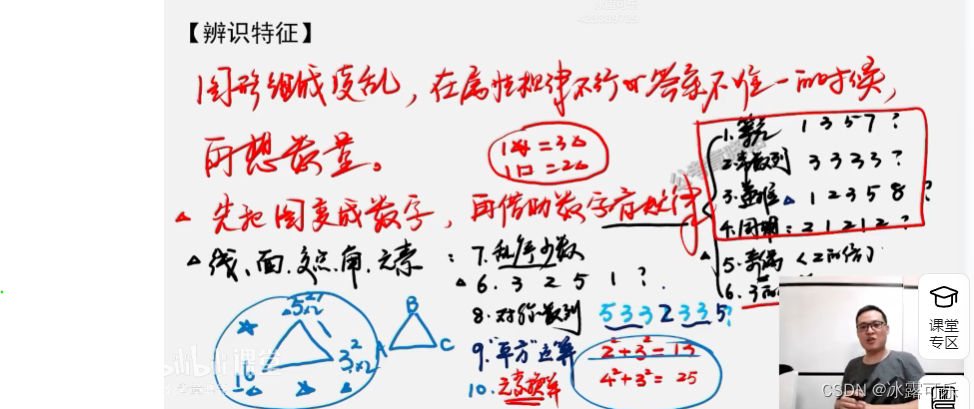 【辨识特征】
图形组成凌乱，在属性规律不行or答案不唯一的时候，
再想数量。
1☆=3△
1口=2△
△先把图变成数字，再借助数字有规律
△线、面、交点、角、元素：
1. 等差 1 3 5 7 ?
2. 常数列 3 3 3 3 ?
3. 递推 △ 1 2 3 5 8 ?
4. 周期：2 1 2 1 2 ?
5. 奇偶（2的倍）
6. 3的
7. 乱序少数
△ 6. 3 2 5 1 ?
8. 对称数列 5 3 3 2 3 3 5?
9. "平方"运算 2²+3²=13
4²+3²=25
10. 元素换算
A
B
C
课堂
专区
bilibili课堂
CSDN @冰露可乐